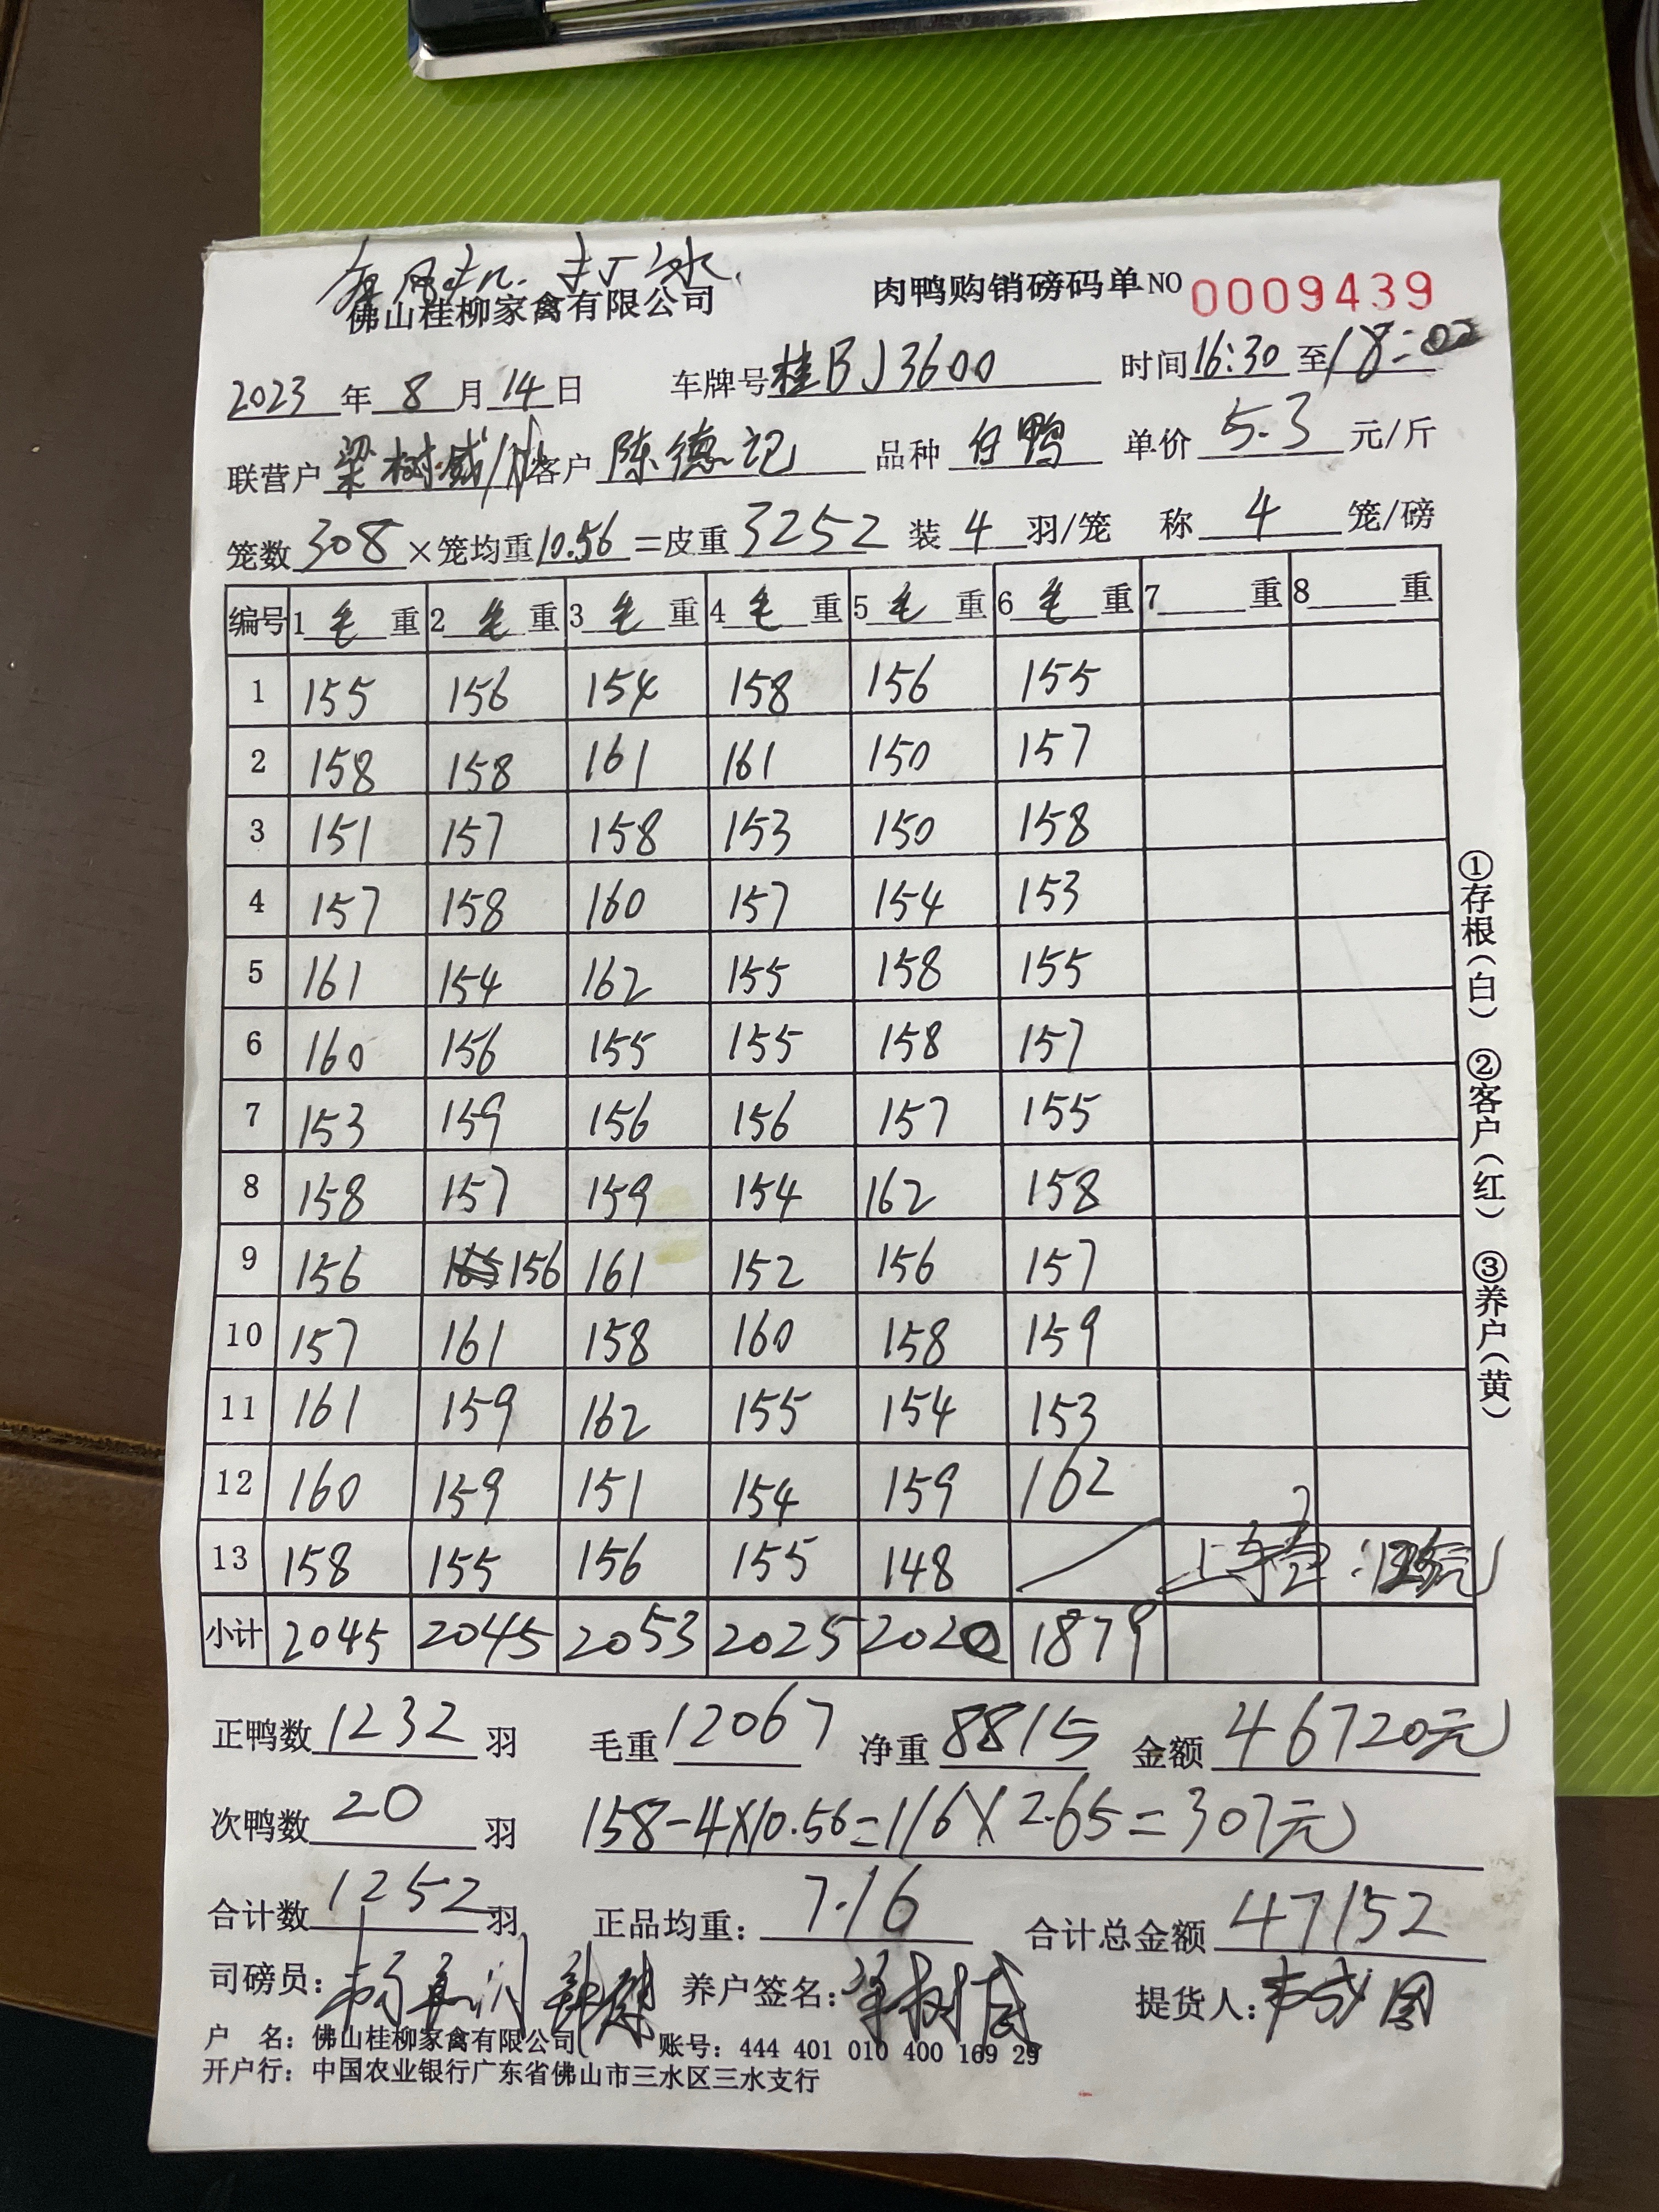 佛山桂柳家禽有限公司 肉鸭购销磅码单 NO 0009439
2023年8月14日 车牌号桂BJ3600 时间16:30至18:02
联营户梁树威 客户陈德记 品种白鸭 单价5.3元/斤
笼数308×笼均重10.56=皮重3252 装4羽/笼 称4笼/磅
编号 1毛重 2毛重 3毛重 4毛重 5毛重 6毛重 7重 8重
1 155 156 154 158 156 155
2 158 158 161 161 150 157
3 151 157 158 153 150 158
4 157 158 160 157 154 153
5 161 154 162 155 158 155
6 160 156 155 155 158 157
7 153 159 156 156 157 155
8 158 157 159 154 162 158
9 156 156 161 152 156 157
10 157 161 158 160 158 159
11 161 159 162 155 154 153
12 160 159 151 154 159 162
13 158 155 156 155 148 上车
小计 2045 2045 2053 2025 2020 1879
正鸭数1232羽 毛重12067 净重8815 金额46720元
次鸭数20羽 158-4×10.56=116×2.65=307元
合计数1252羽 正品均重：7.16 合计总金额47152
司磅员： 养户签名：梁树威 提货人：
户名：佛山桂柳家禽有限公司 账号：444 401 010 400 169 29
开户行：中国农业银行广东省佛山市三水区三水支行
①存根（白） ②客户（红） ③养户（黄）